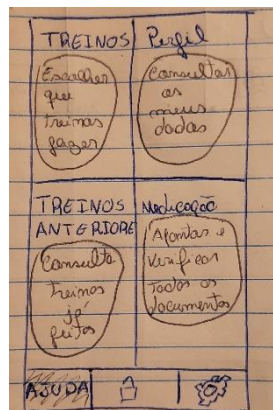 TREINOS
Escolher
que
treinos
fazer
Perfil
Consultar
os
meus
dados
TREINOS
ANTERIORE
Consulta
treinos
já
feitos
Medicação
Apontar e
Verificar
todos os
documentos
AJUDA